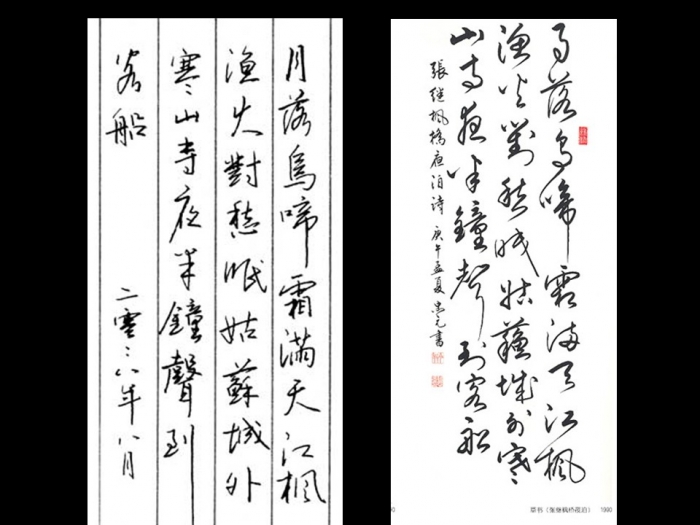 月落烏啼霜滿天江楓
漁火對愁眠姑蘇城外
寒山寺夜半鐘聲到
客船
二零零八年八月
月落烏啼霜满天江楓
漁火對愁眠姑蘇城外寒
山寺夜半鐘聲到客船
張继楓橋夜泊诗 庚午孟夏 書
草书（张继枫桥夜泊） 1990